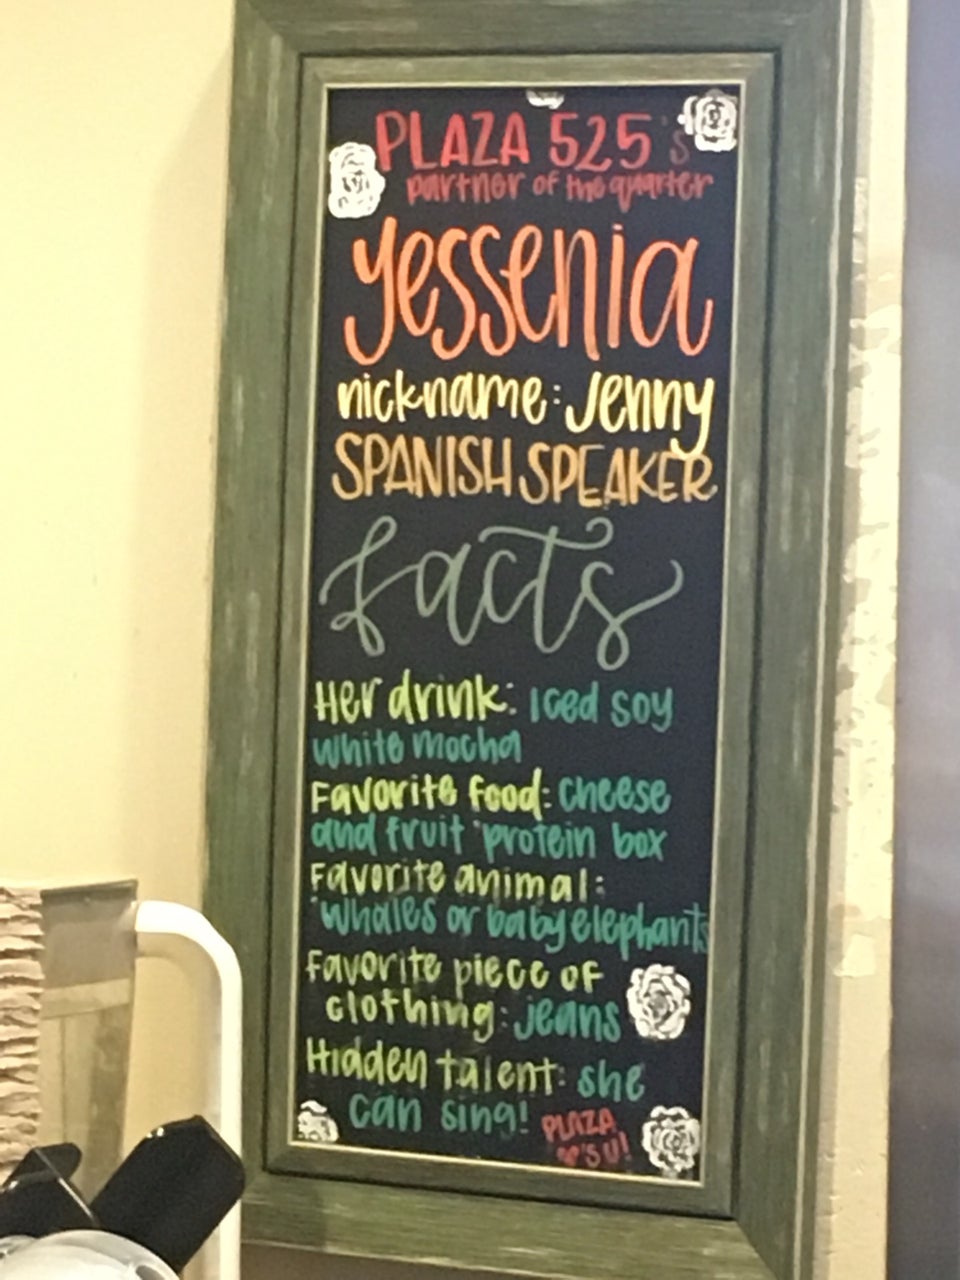 PLAZA 525's
partner of the quarter
yessenia
nickname: Jenny
SPANISH SPEAKER
facts
Her drink: Iced soy
white mocha
Favorite food: cheese
and fruit protein box
Favorite animal:
whales or baby elephants
Favorite piece of
clothing: jeans
Hidden talent: she
can sing!
PLAZA
♥'s U!